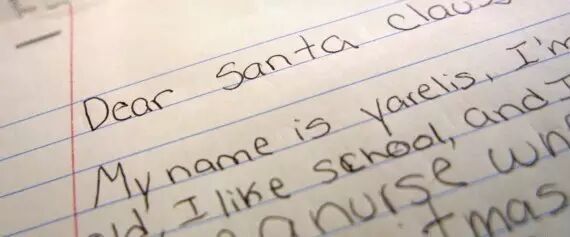 Dear Santa Claus
My name is Yarelis, I'm
old, I like school, and I
a nurse wh
tmas